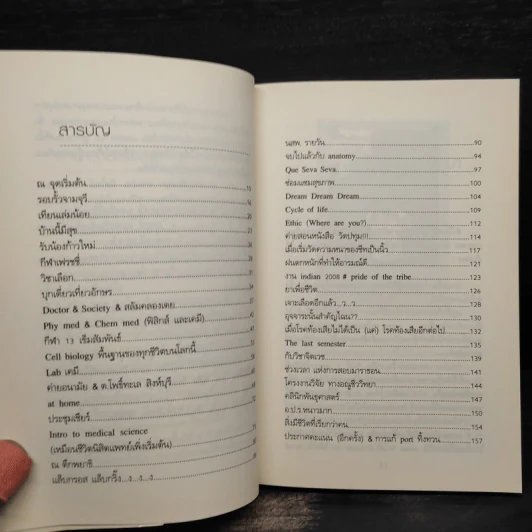 สารบัญ
ณ จุดเริ่มต้น
รอบรั้วจามจุรี
เทียนเล่มน้อย
บ้านนี้มีสุข
รับน้องก้าวใหม่
กีฬาเฟรชชี่
วิชาเลือก
บุกเดี่ยวเที่ยวอักษร
Doctor & Society & สลัมคลองเตย
Phy med & Chem med (ฟิสิกส์ และเคมี)
กีฬา 13 เข็มสัมพันธ์
Cell biology พื้นฐานของทุกชีวิตบนโลกนี้
Lab เคมี
ค่ายอนามัย & ต.โพธิ์ทะเล สิงห์บุรี
at home
ประชุมเชียร์
Intro to medical science
(เหมือนชีวิตนิสิตแพทย์เพิ่งเริ่มต้น)
ณ ตึกพยาธิ
แล็บกรอส แล็บกริ๊ง...ง...ง...ง
นสพ. รายวัน 90
จบไปแล้วกับ anatomy 94
Que Seva Seva 97
ซ่อมแซมสุขภาพ 100
Dream Dream Dream 104
Cycle of life 109
Ethic (Where are you?) 112
ค่ายสอนหนังสือ วัดปทุม!!! 114
เมื่อเริ่มวัดความหนาของชีทเป็นนิ้ว 117
ฝนตกหนักที่ทำให้อารมณ์ดี 121
งาน indian 2008 # pride of the tribe 123
ยาเพื่อชีวิต 126
เจาะเลือดอีกแล้ว...ว...ว 128
อุจจาระนั้นสำคัญไฉน?? 130
เมื่อโรคท้องเสียไม่ได้เป็น (แค่) โรคท้องเสียอีกต่อไป 132
The last semester 135
กับวิชาจิตเวช 139
ช่วงเวลา แห่งการสอบมาราธอน 141
โครงงานวิจัย ทางอณูชีววิทยา 144
คลินิกพันธุศาสตร์ 147
อ.ป.ร.หนาวมาก 150
สิ่งมีชีวิตที่เรียกว่าคน 154
ประกาศคะแนน (อีกครั้ง) & การแก้ port ทิ้งทวน 157